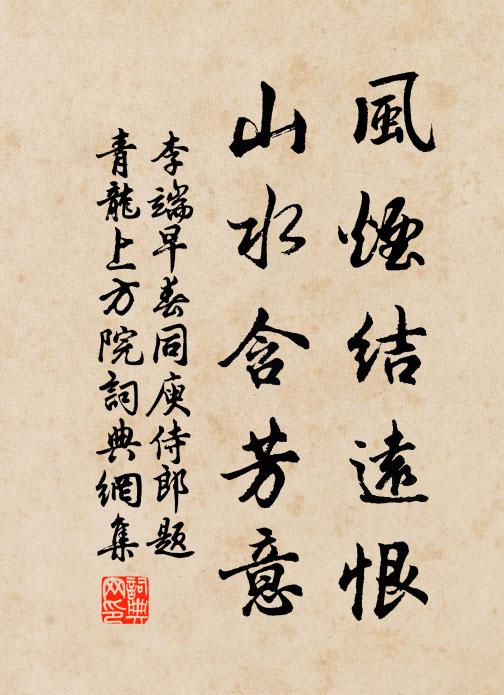 風煙結遠恨
山水含芳意
李端早春同庾侍郎題
青龍上方院詞典網集
詞典
网印